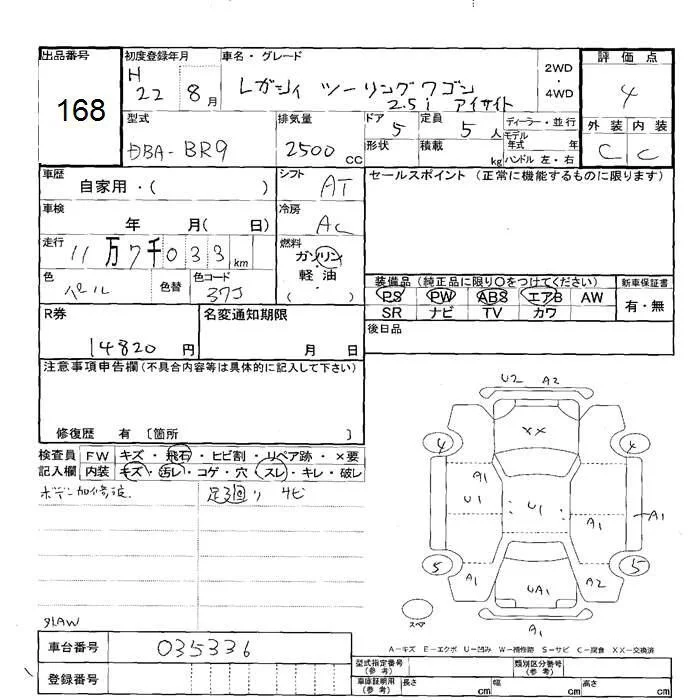 出品番号
168
初度登録年月
H 22 8月
車名・グレード
レガシィ ツーリングワゴン
2.5i アイサイト
2WD
・
4WD
評価点
4
外装 内装
C C
型式
DBA-BR9
排気量
2500 CC
ドア 5
定員 5 人
形状
積載 kg
ディーラー・並行
モデル
年式 年
ハンドル 左・右
車歴
自家用・( )
シフト
AT
セールスポイント(正常に機能するものに限ります)
車検
年 月( 日)
冷房
AC
走行
11万7千033km
燃料
ガソリン
軽油
( )
色
パール
色替
色コード
37J
装備品(純正品に限り○をつけてください)
PS PW ABS エアB AW
SR ナビ TV カワ
新車保証書
有・無
R券
14820 円
名変通知期限
月 日
後日品
注意事項申告欄(不具合内容等は具体的に記入して下さい)
修復歴 有 〔箇所 〕
検査員
記入欄
FW キズ・飛石・ヒビ割・リペア跡・×要
内装 キズ・汚レ・コゲ・穴・スレ・キレ・破レ
足廻り サビ
U2 A2
4 XX 4
A1
U1 U1
A1 A1
5 5
A1 UA1 A2
スペア
A1
A-キズ E-エクボ U-凹み W-補修跡 S-サビ C-腐食 XX-交換済
車台番号
035336
登録番号
型式指定番号
(参考)
類別区分番号
(参考)
車庫証明用
(参考)
長さ cm
幅 cm
高さ cm